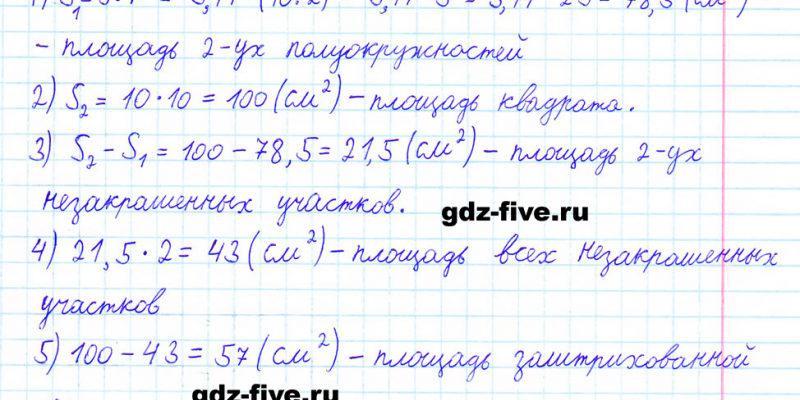 – площадь 2-ух полуокружностей
2) S₂ = 10·10 = 100 (см²) – площадь квадрата.
3) S₂ – S₁ = 100 – 78,5 = 21,5 (см²) – площадь 2-ух
незакрашенных участков.
gdz-five.ru
4) 21,5·2 = 43 (см²) – площадь всех незакрашенных
участков
5) 100 – 43 = 57 (см²) – площадь заштрихованной
gdz-five.ru